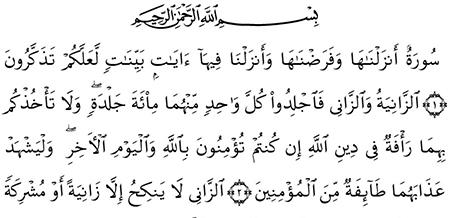 بِسْمِ اللَّهِ الرَّحْمَٰنِ الرَّحِيمِ
سُورَةٌ أَنزَلْنَٰهَا وَفَرَضْنَٰهَا وَأَنزَلْنَا فِيهَآ ءَايَٰتٍۭ بَيِّنَٰتٍ لَّعَلَّكُمْ تَذَكَّرُونَ
﴿١﴾ الزَّانِيَةُ وَالزَّانِى فَاجْلِدُوا۟ كُلَّ وَاحِدٍ مِّنْهُمَا مِا۟ئَةَ جَلْدَةٍ ۖ وَلَا تَأْخُذْكُم
بِهِمَا رَأْفَةٌ فِى دِينِ اللَّهِ إِن كُنتُمْ تُؤْمِنُونَ بِاللَّهِ وَالْيَوْمِ الْأَاخِرِ ۖ وَلْيَشْهَدْ
عَذَابَهُمَا طَآئِفَةٌ مِّنَ الْمُؤْمِنِينَ ﴿٢﴾ الزَّانِى لَا يَنكِحُ إِلَّا زَانِيَةً أَوْ مُشْرِكَةً